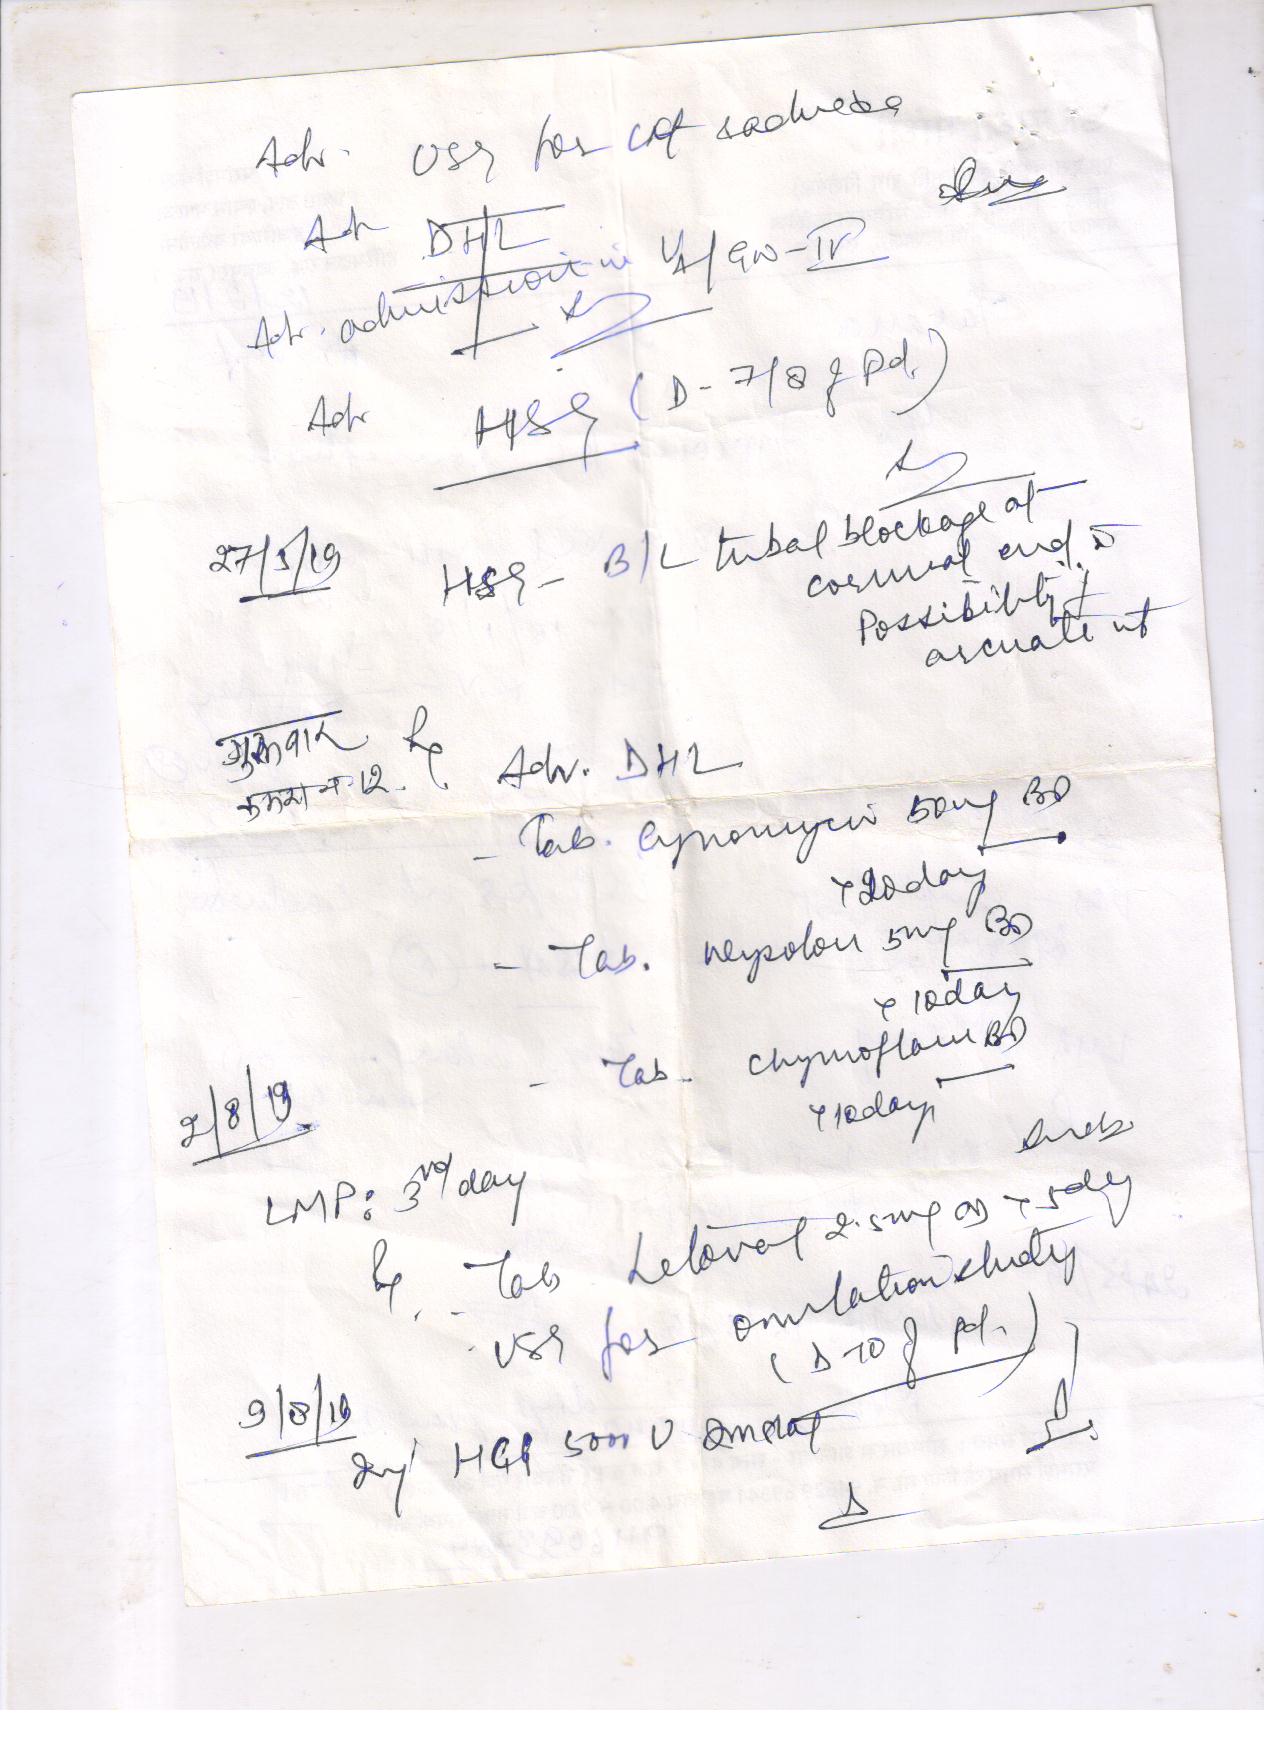 Adv. USG for
Adv DHL
Adv. admission in U/A/GW-IV
Adv HSG (D-7/8 of Pd.)
27/5/19 HSG - B/L tubal blockage at
cornual end. c̄
Possibility of
arcuate ut
गुरुवार Rx Adv. DHL
कमरा न. 12.
- Tab. Cynomycin 50mg BD
x 20day
- Tab. Wysolon 5mg BD
x 10day
- Tab. Chymoflam BD
x 10day
2/8/19
LMP: 3rd day
Rx. - Tab Letoval 2.5mg OD x 5day
USG for ovulation study
(D-10 of Pd.)
9/8/19
Inj HCG 5000 U